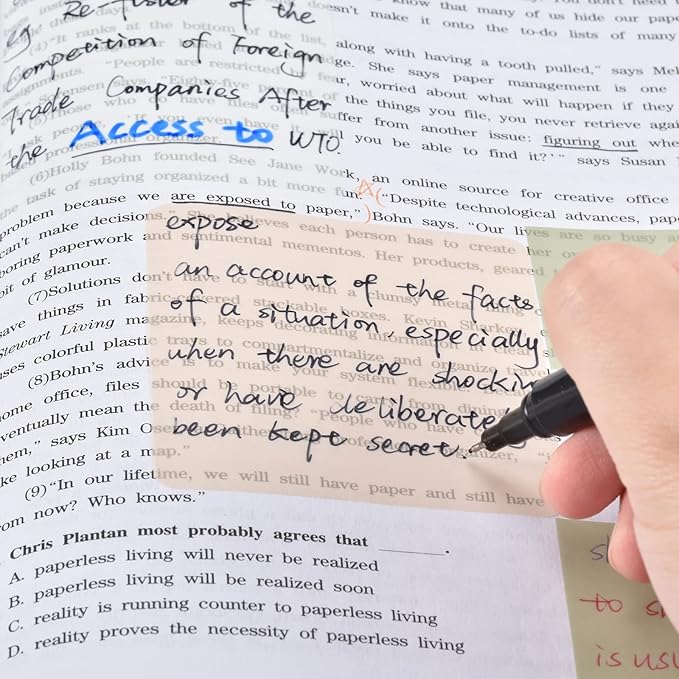 know that many of us hide our pape
doesn't make it onto the to-do lists of many
eg Re- of the
Competition of Foreign
Trade Companies After
the Access to WTO.
(4)"It ranks at the bottom of the list,
along with having a tooth pulled," says Mel
ge. She says paper management is one
assignments. "People are restricted by fear, worried about what will happen if they
Sorensen says. "Eighty-five percent of the things you file, you never retrieve agai
(5)Those who have files often suffer from another issue: figuring out whe
ask people, "If you even have it will you be able to find it?'" says Susan
based professional organizer.
(6)Holly Bohn founded See Jane Work, an online source for creative office
the task of staying organized a bit more fun. "Despite technological advances, pape
problem because we are exposed to paper," Bohn says. "Our lives are so busy a
can't make decisions." She believes each person has to create her ov
boring paperwork and sentimental mementos. Her products, geared t
bit of glamour.
(7)Solutions don't have to start with a clumsy metal filing c
save things in fabric-covered stackable boxes. Kevin Sharkey,
Stewart Living magazine, keeps decorating information in clear s
uses colorful plastic trays to compartmentalize and organize trave
(8)Bohn's advice is to make your system flexible because
ome office, files should be portable to carry from dining
ventually mean the death of filing? "People who have
hem," says Kim Ose professional organizer, "i
ke looking at a map."
(9)"In our lifetime, we will still have paper and still have
om now? Who knows."
expose
an account of the facts
of a situation, especially
when there are shockin
or have deliberate
been kept secret.
Chris Plantan most probably agrees that ______.
A. paperless living will never be realized
B. paperless living will be realized soon
C. reality is running counter to paperless living
D. reality proves the necessity of paperless living
to s
is usu